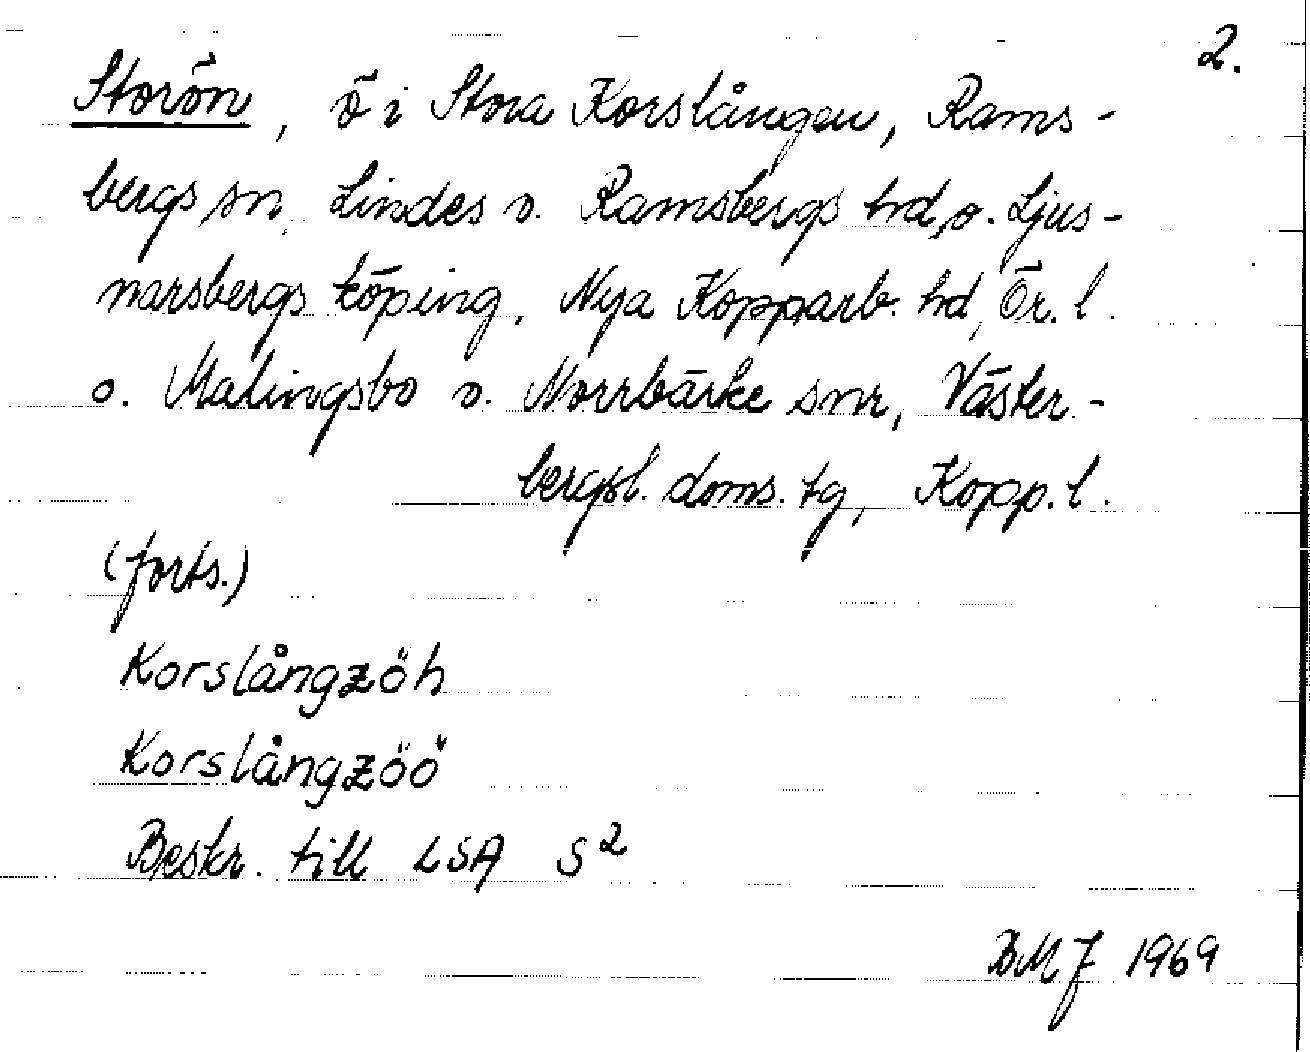 2.
Storön, ö i Stora Korslången, Rams-
bergs sn, Lindes o. Ramsbergs hd, o. Ljus-
narsbergs köping, Nya Kopparb. hd, Ör. l.
o. Malingsbo o. Norrbärke snr, Väster-
bergsl. doms. tg, Kopp. l.
(forts.)
Korslångzöh
Korslångzöö
Beskr. till LSA S²
BMJ 1969